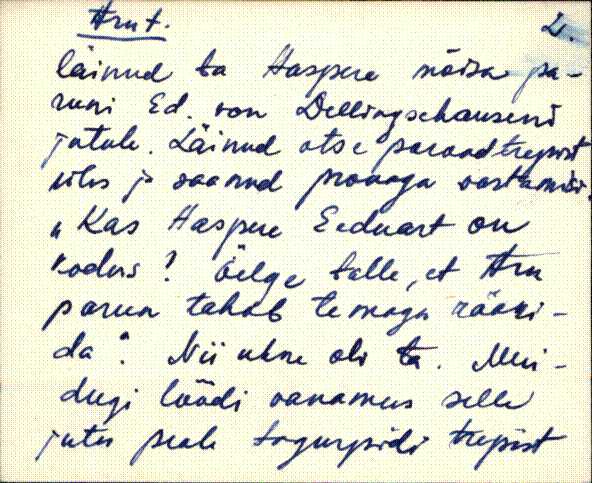 Aru t.
2.
läinud ta Haspere mõisa pa-
runi Ed. von Dellingschauseni
jutule. Läinud otse paraadtrepist
üles ja saanud prouaga vastamisi.
„Kas Haspere Eeduart on
kodus? Öelge talle, et Aru
parun tahab temaga rääki-
da“. Nii uhke oli ta. Mui-
dugi löödi vanamees selle
jutu peale tagurpidi trepist